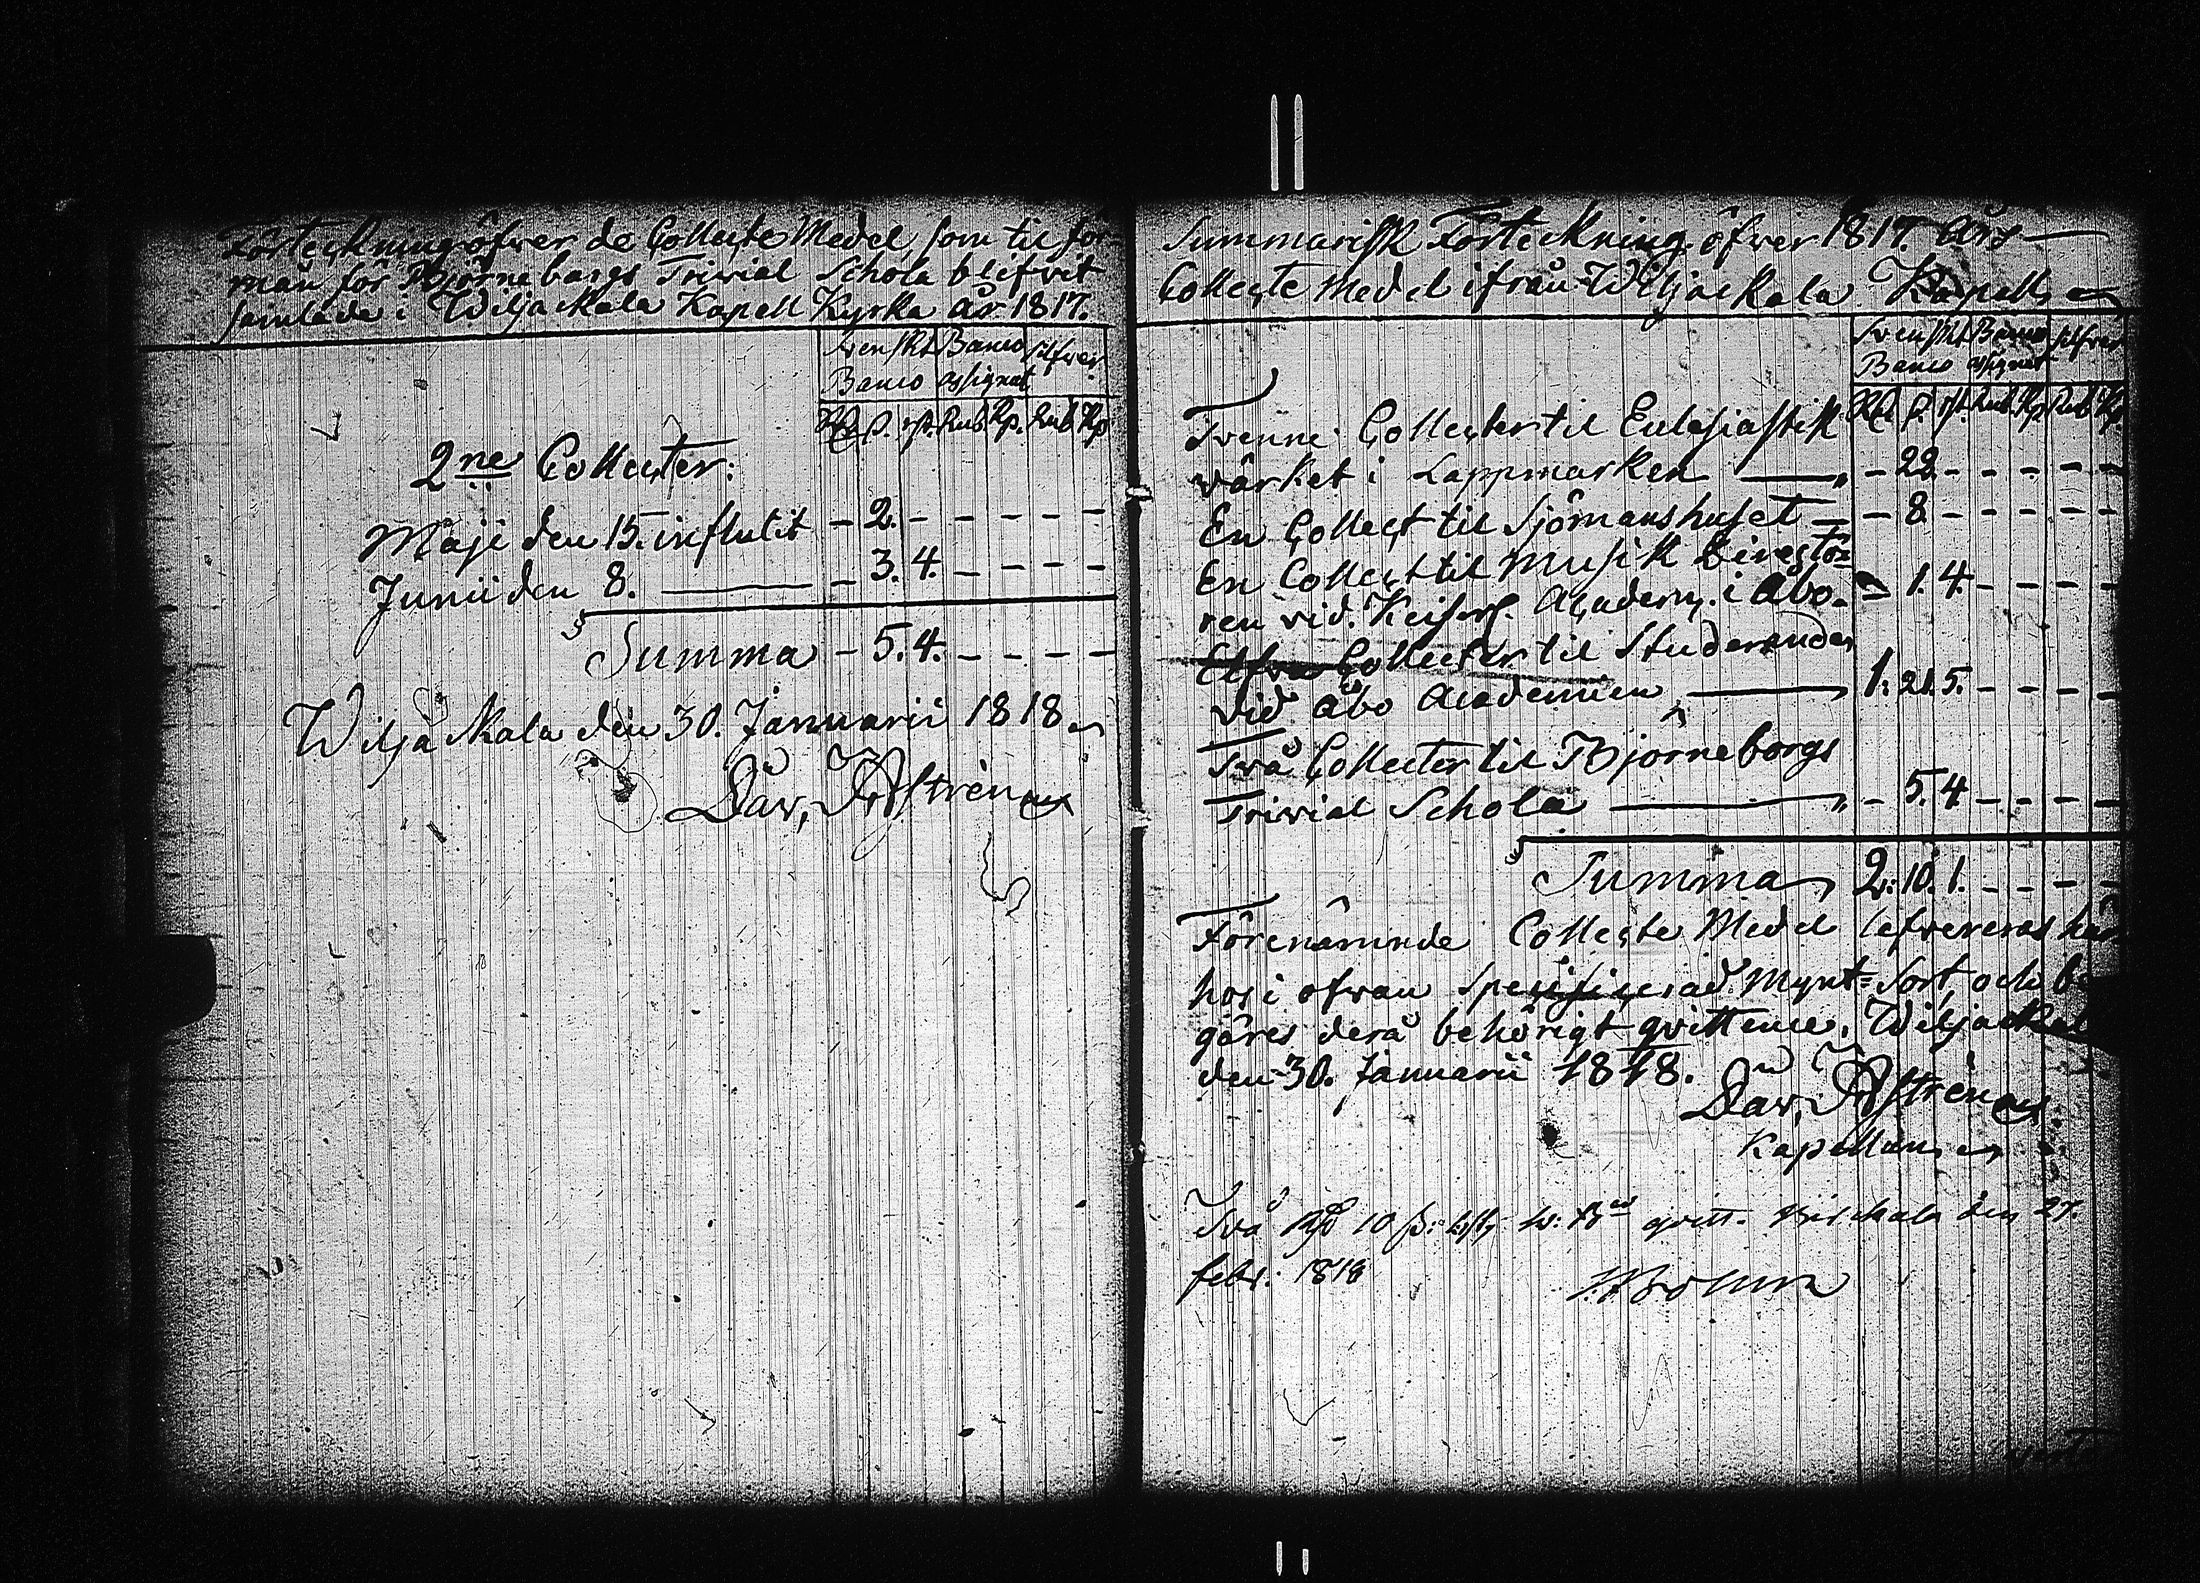 Förteckning öfwer de Collecte Medel, som til för-
mån för Björneborgs Trivial Schola blifvit
samlade i Wiljackala Kapell Kyrka år 1817.
Svenskt Banco Silfver
Banco assignat
Rd. ß. rst. Rub. Kp. Rub. Kp
2ne Collecter:
Maji den 15. influtit - 2. - - - - -
Junii den 8. - 3. 4. - - - -
Summa - 5. 4. - - - -
Wiljackala den 30. Januarii 1818
Dav. Astrén
Summarisk Förteckning öfwer 1817. Års
Collecte Medel ifrån Wiljackala Kapell
Svenskt Banco Silfver
Banco assignat
Rd. ß. rst. Rub. Kp. Rub. Kp.
Tvenne Collecter til Ecclesiastik
värket i Lappmarken - 22. - - - - -
En Collect til Sjömanshuset - 8. - - - - -
En Collect til Musik Directö-
ren vid Keiserl. Academ. i Åbo. - 1. 4. - - - -
Elfva Collecter til Studerande
vid Åbo Academien 1: 21. 5. - - - -
Två Collecter til Björneborgs
Trivial Schola - 5. 4. - - - -
Summa 2: 10. 1. - - - -
Förenämnde Collecte Medel lefvereras här
hos i ofvan specificerad Mynt-Sort, och be
gäres derå behörigt qvittence. Wiljackala
den 30. Januarii 1818.
Dav. Astrén
Kapellan
Två Rd 10 ß: 1 rst. Sv: Bco qvitt. den 27.
febr: 1818